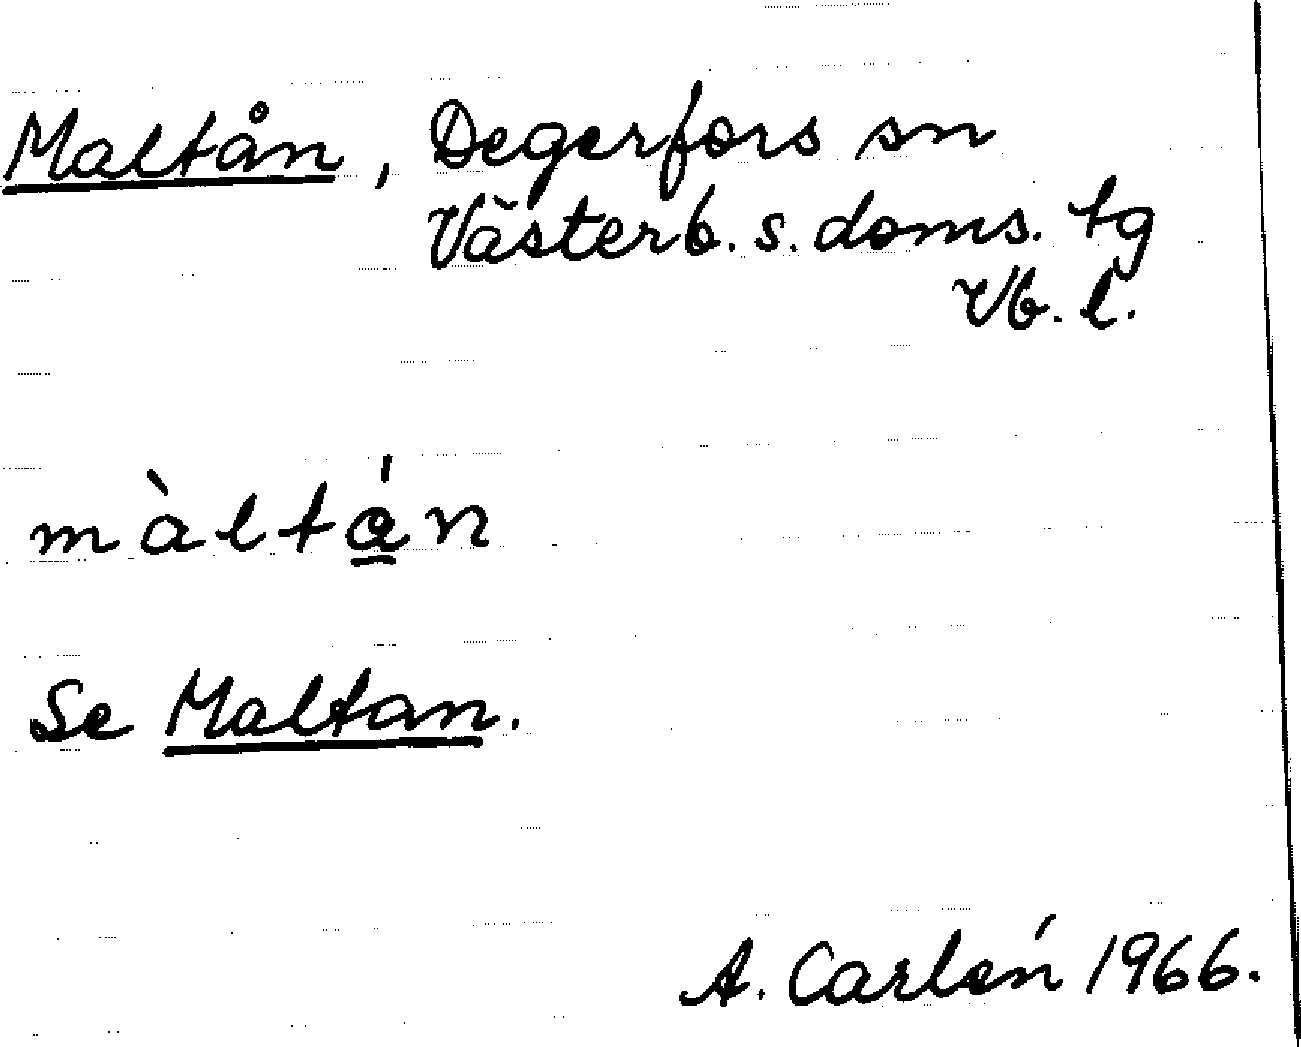 Maltån, Degerfors sn
Västerb. s. doms. tg
Vb. l.
màltá̱n
Se Maltan.
A. Carlén 1966.